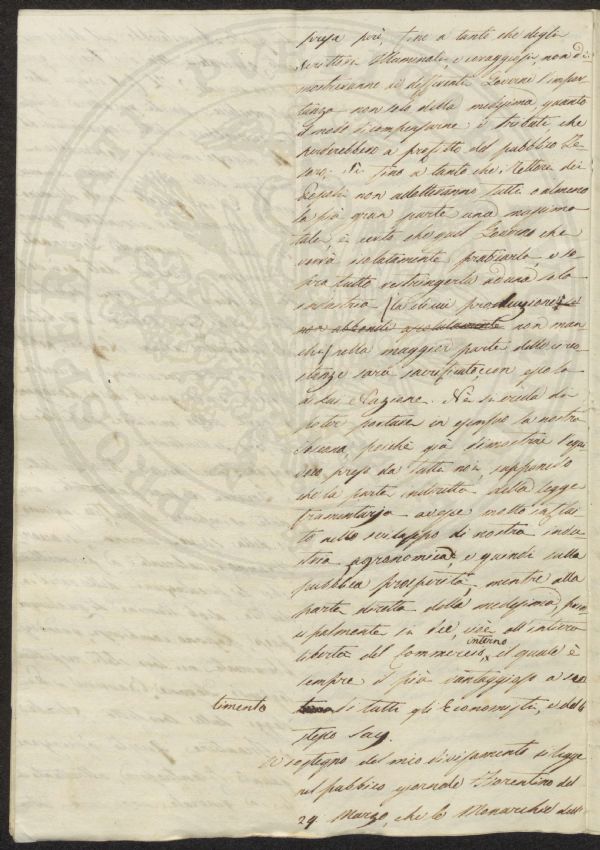 presa però, fino a tanto che degli
scrittori illuminati, e coraggiosi, non di-
mostreranno ai differenti Governi l'impor-
tanza non solo della medesima, quanto
il modo di compensarne i tributi che
perderebbero a profitto del pubblico Te-
soro; Nè fino a tanto che i Rettori dei
Popoli non adotteranno tutti o almeno
la più gran parte una massima
tale, è certo che quel Governo che
vorrà isolatamente praticarla, e so-
pra tutto restringerla ad una sola
industria (la di cui produzione
non abbondi assolutamente non man
chi) nella maggior parte delle circo-
stanze sarà sacrificata, con essa
la sua Nazione. Nè si creda di
poter portare in esempio la nostra
Toscana, poichè già dimostrai l'equi-
voco preso da tutti non supponendo
che la parte indiretta della legge
frumentaria avesse molto influi
to nello sviluppo di nostra indu
stria agronomica, e quindi sulla
pubblica prosperità, mentre alla
parte diretta della medesima, prin
cipalmente si dee, cioè all'intiera
interno
libertà del Commercio, il quale è
sempre il più vantaggioso a sen
timento di tutti gli Economisti, e dello
stesso Say.
A sostegno del mio divisamento si legge
nel pubblico giornale Fiorentino del
29 Marzo, che le Monarchie dell'